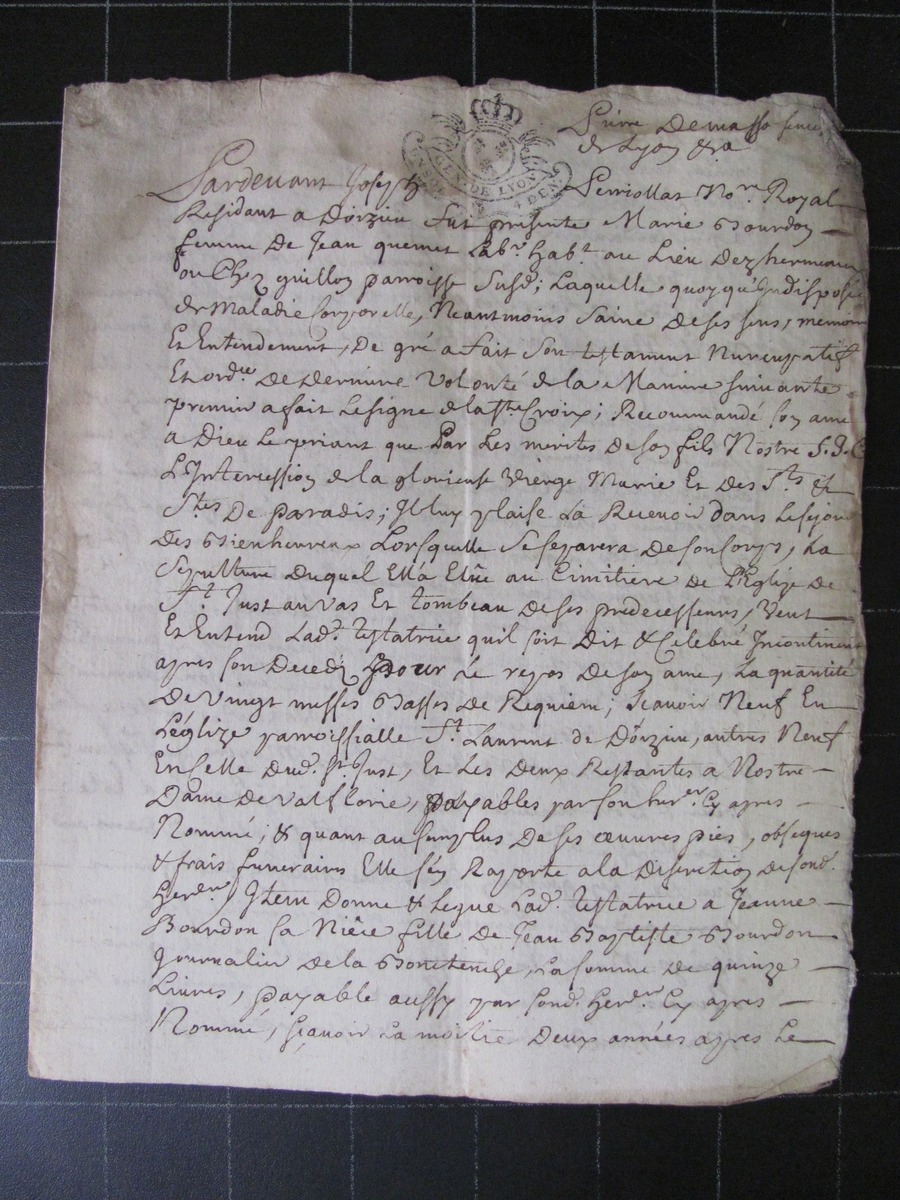 Pierre Demasso senec
de Lyon &a
GEN. DE LYON
4 DEN.
Pardevant Joseph Perriollat No.re Royal
Residant a Doizieu fut presente Marie Bourdon
femme De Jean quemet Lab.r hab.t au Lieu Dezhermeaux
ou Chez guillon parroisse Susd; Laquelle quoyqu'Indisposée
de Maladie Corporelle, Neantmoins Saine De ses sens, memoire
Et Entendement, De gré a fait Son testament Nuncupatif
Et ord.re De Derniere Volonté de la Maniere suivante
premier a fait Le signe de la S.te Croix; Recommandé son ame
a Dieu Le priant que Par Les merites De son fils Nostre S. J. C
L'Intercession de la glorieuse Vierge Marie Et Des S.ts &
S.tes De paradis; Il luy plaise La Recevoir dans Le sejour
Des Bienheureux Lorsquelle Se separera De son Corps, La
Sepulture Duquel Ell'a Elüe au Cimitiere de L'Eglize De
S.t Just au vas Et tombeau De ses predecesseurs, Veut
Et Entend Lad.e testatrice quil soit Dit & Celebré Incontinent
apres son Decedz pour Le repos De son ame, La quantité
De vingt messes Basses De Requiem; scavoir Neuf En
L'eglize parroissialle S.t Laurent de Doizieu, autres Neuf
En selle Dud. S.t Just, Et Les Deux Restantes a Nostre
Dame De valflorie, payables par son her.er Cy apres
Nommé; & quant au surplus De ses œuvres pies, obseques
& frais funeraires Elle s'en Raporte a la Discretion De sond.
her.er Item Donne & Legue Lad. testatrice a Jeanne
Bourdon sa Niêce fille De Jean Baptiste Bourdon
Journalier De la La somme De quinze
Livres, payable aussy par sond. her.er Cy apres
Nommé, sçavoir La moitie Deux années apres Le